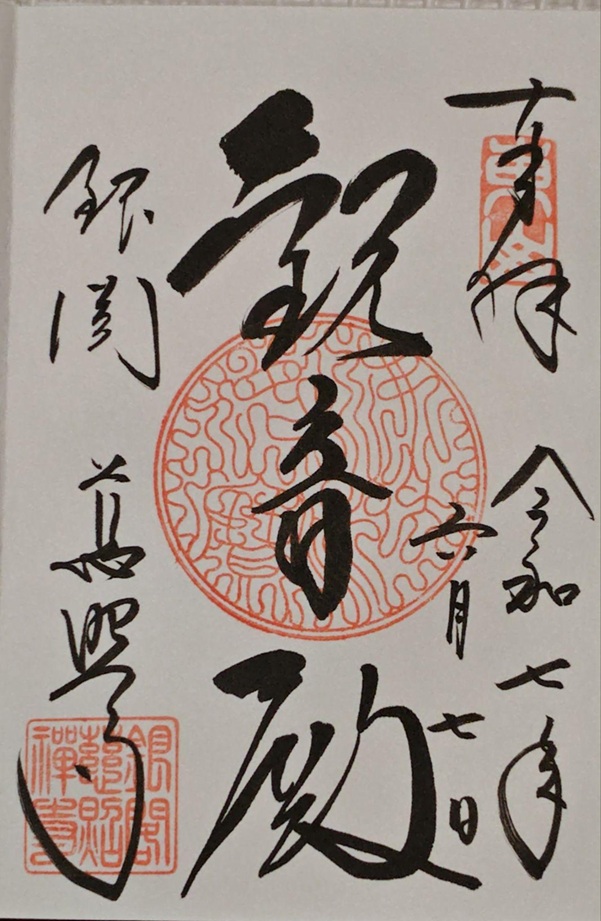 奉拝
令和七年
六月
七日
観音殿
銀閣
慈照寺
銀閣
慈照
禅寺